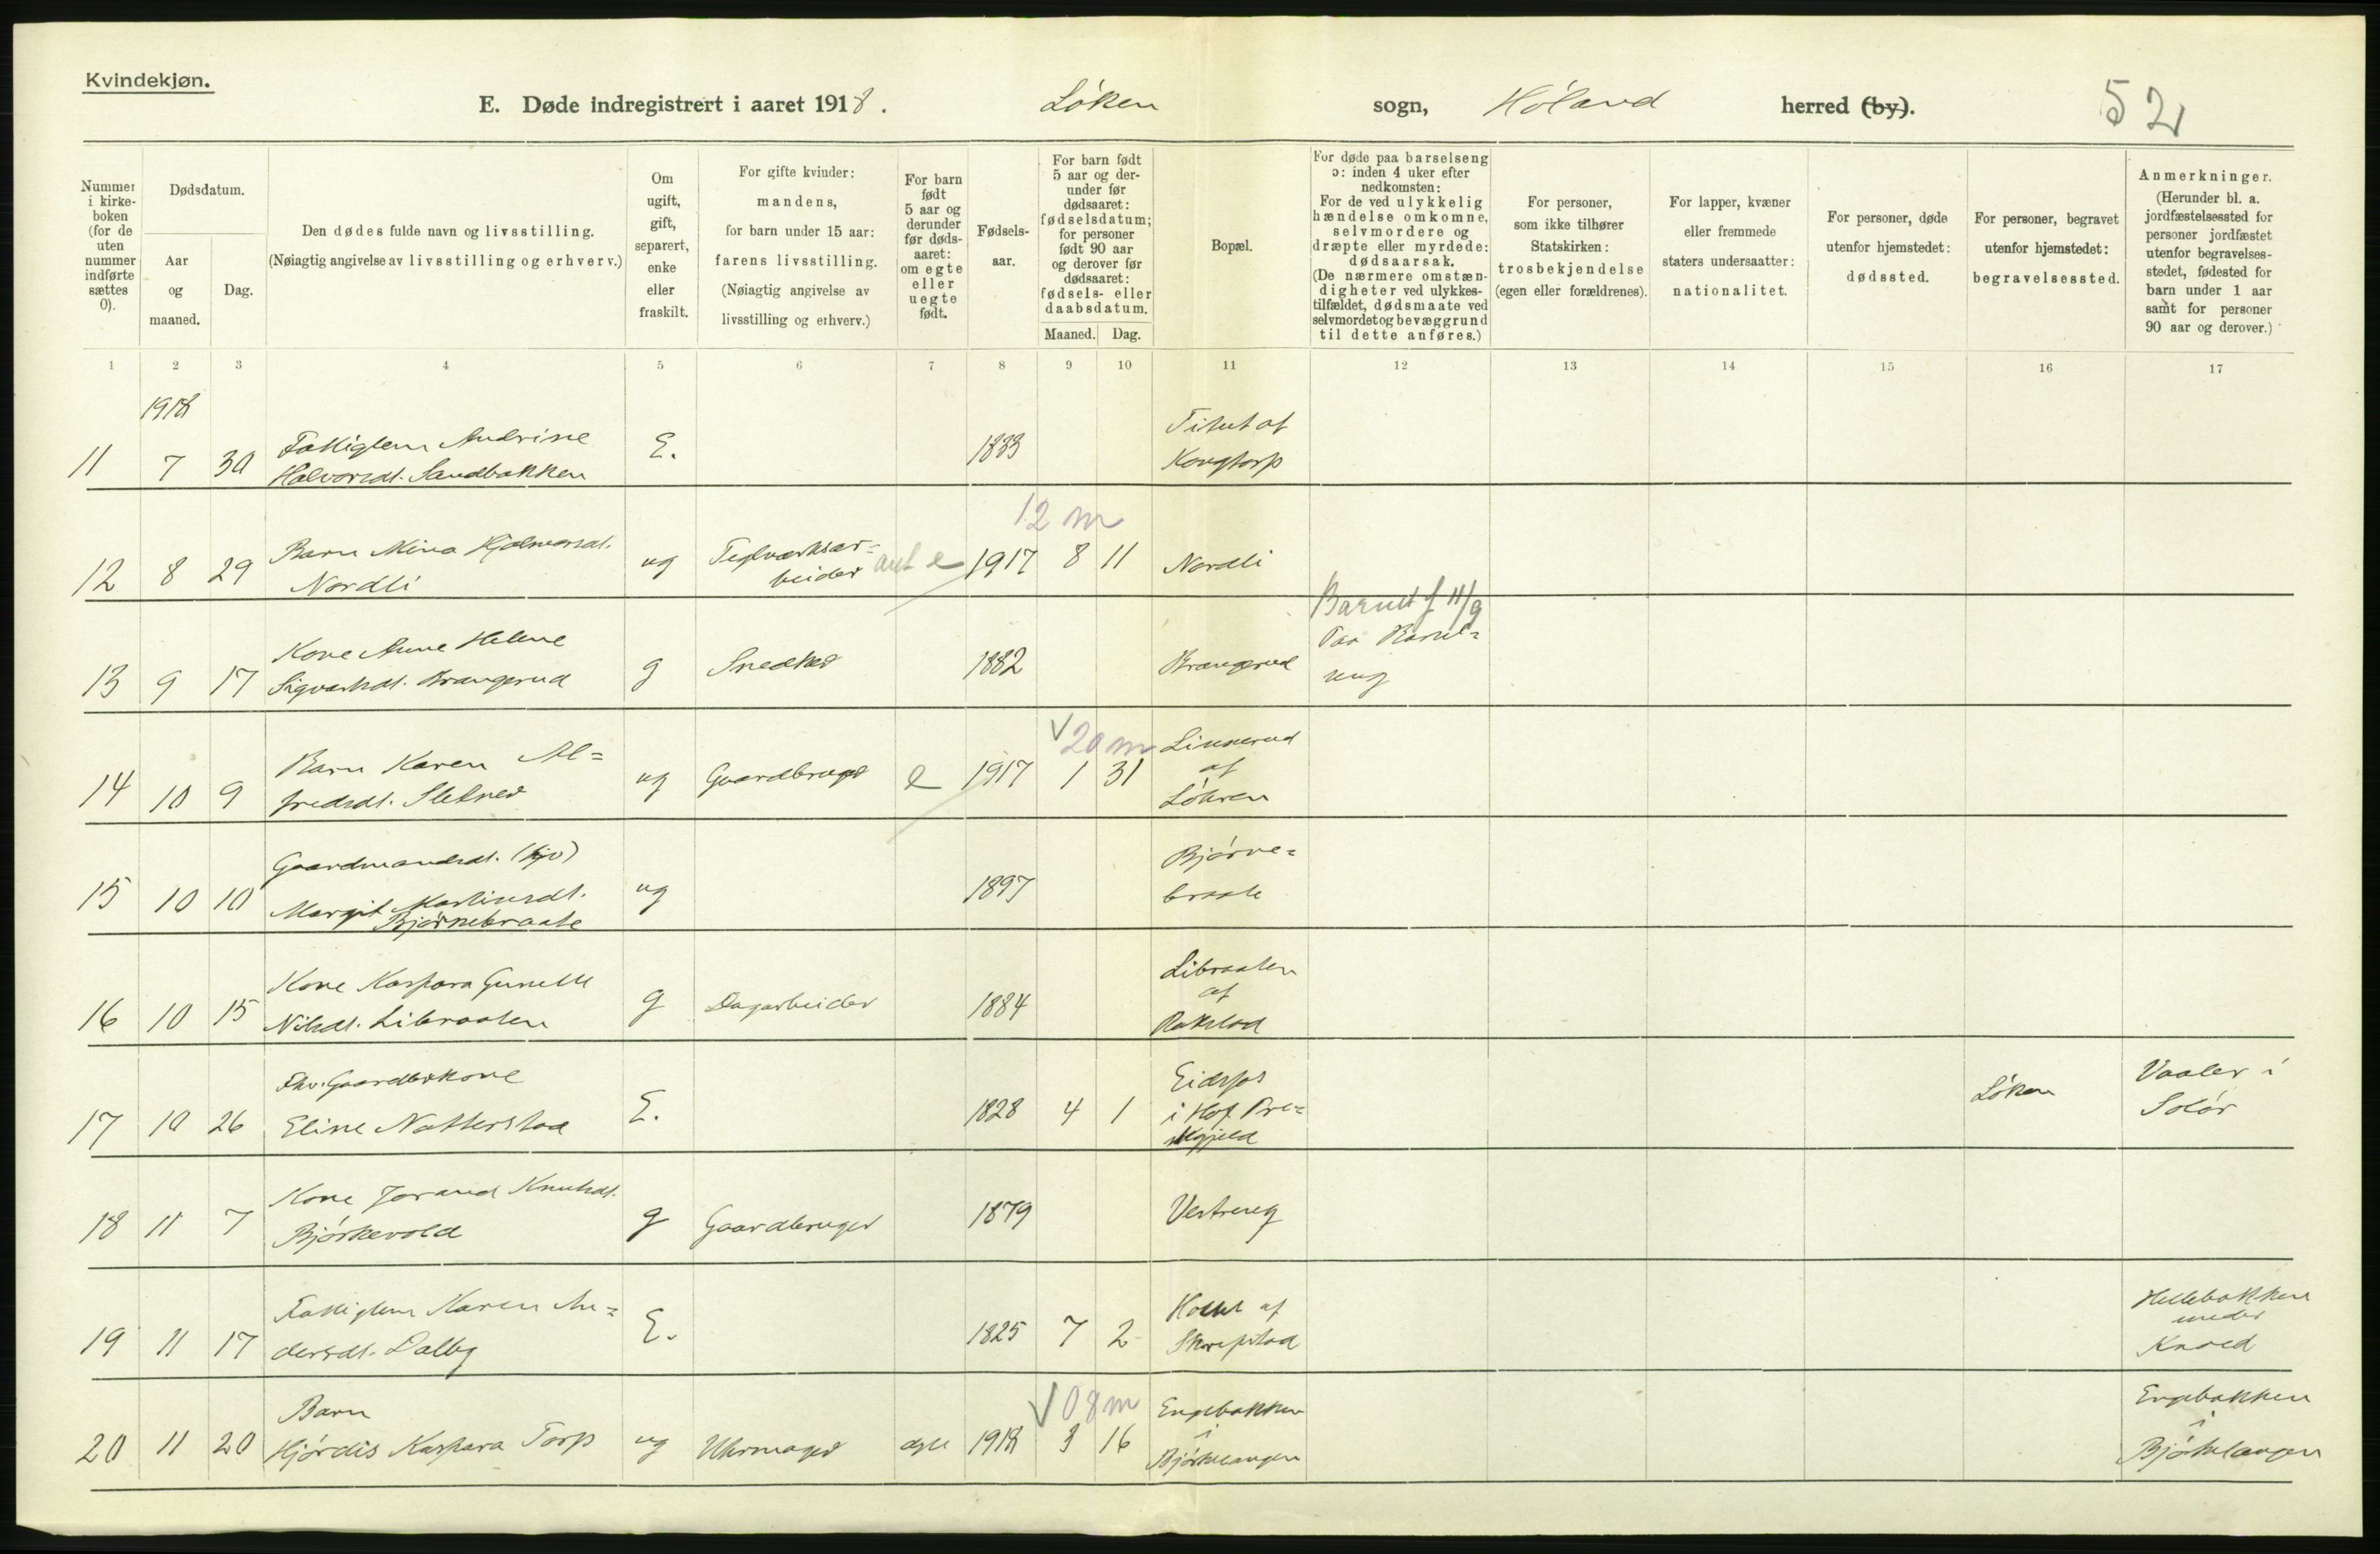 Kvindekjøn.
E. Døde indregistrert i aaret 1918.
Løken sogn, Høland herred (by).
52
Nummer i kirkeboken (for de uten nummer indførte sættes 0).
Dødsdatum.
Aar og maaned.
Dag.
Den dødes fulde navn og livsstilling.
(Nøiagtig angivelse av livsstilling og erhverv.)
Om ugift, gift, separert, enke eller fraskilt.
For gifte kvinder: mandens, for barn under 15 aar: farens livsstilling.
(Nøiagtig angivelse av livsstilling og erhverv.)
For barn født 5 aar og derunder før dødsaaret: om egte eller uegte født.
Fødselsaar.
For barn født 5 aar og derunder før dødsaaret: fødselsdatum; for personer født 90 aar og derover før dødsaaret: fødsels- eller daabsdatum.
Maaned. Dag.
Bopæl.
For døde paa barselseng ɔ: inden 4 uker efter nedkomsten:
For de ved ulykkelig hændelse omkomne, selvmordere og dræpte eller myrdede: dødsaarsak.
(De nærmere omstændigheter ved ulykkestilfældet, dødsmaate ved selvmordet og bevæggrund til dette anføres.)
For personer, som ikke tilhører Statskirken: trosbekjendelse (egen eller forældrenes).
For lapper, kvæner eller fremmede staters undersaatter: nationalitet.
For personer, døde utenfor hjemstedet: dødssted.
For personer, begravet utenfor hjemstedet: begravelsessted.
Anmerkninger.
(Herunder bl. a. jordfæstelsessted for personer jordfæstet utenfor begravelsesstedet, fødested for barn under 1 aar samt for personer 90 aar og derover.)
1 2 3 4 5 6 7 8 9 10 11 12 13 14 15 16 17
1918
11 7 30 Fattiglem Andrine
Halvorsdt. Sandbakken E. 1833
Kongtorp
12 m
12 8 29 Barn Mina Hjalmarsdt.
Nordli ug Teglverksar=
beider e 1917 8 11 Nordli
Barnet f 11/9
13 9 17 Kone Anne Helene
Sigvartsdt. Brangerud g Snedker 1882 Brangerud Paa Barsel=
seng
V 20 m
14 10 9 Barn Karen Al=
fredsdt. Sletner ug Gaardbruger e 1917 1 31 Linnerud
af
Løken
15 10 10 Gaardmandsdt.
Margit Martinsdt.
Bjørnebraate ug 1897 Bjørne=
braate
16 10 15 Kone Kaspara Gunelle
Nilsdt. Libraaten g Dagarbeider 1884 Libraaten
af
Rakstad
17 10 26 Fhv. Gaardbrkone
Eline Natterstad E. 1828 4 1 Eidsfos
i Hof Pre=
stegjeld Løken Vaaler i
Solør
18 11 7 Kone Jorand Knutsdt.
Bjørkevold g Gaardbruger 1879 Vestreng
19 11 17 Fattiglem Karen An=
dersdt. Dalby E. 1825 7 2
Skrepstad Hellebakken
under
Knold
V 08 m
20 11 20 Barn
Hjørdis Kaspara Torp ug Uhrmager egte 1918 3 16 Engebakken
i
Bjørkelangen Engebakken
i
Bjørkelangen